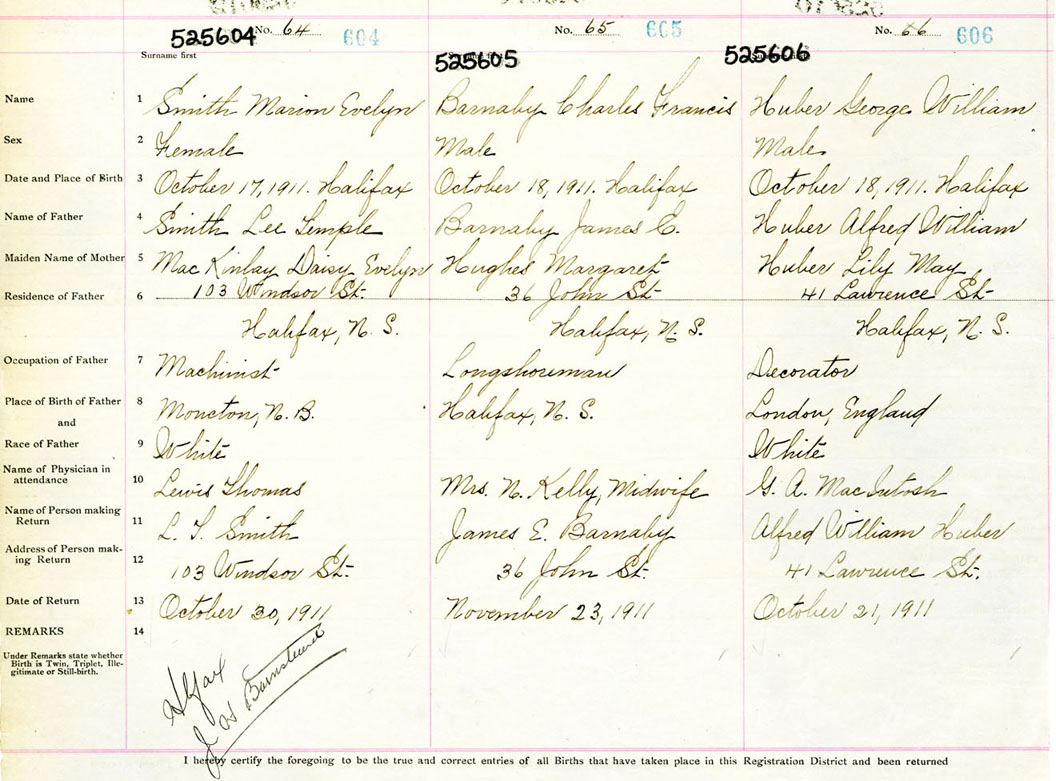 No. 64 604 No. 65 605 No. 66 606
525604 525605 525606
Surname first
Name 1 Smith Marion Evelyn Barnaby Charles Francis Huber George William
Sex 2 Female Male Male
Date and Place of Birth 3 October 17, 1911. Halifax October 18, 1911. Halifax October 18, 1911. Halifax
Name of Father 4 Smith Lee Temple Barnaby James E. Huber Alfred William
Maiden Name of Mother 5 MacKinlay Daisy Evelyn Hughes Margaret Huber Lily May
Residence of Father 6 103 Windsor St. 36 John St. 41 Lawrence St.
Halifax, N. S. Halifax, N. S. Halifax, N. S.
Occupation of Father 7 Machinist Longshoreman Decorator
Place of Birth of Father 8 Moncton, N. B. Halifax, N. S. London, England
and
Race of Father 9 White White
Name of Physician in
attendance 10 Lewis Thomas Mrs. N. Kelly, Midwife G. A. MacIntosh
Name of Person making
Return 11 L. T. Smith James E. Barnaby Alfred William Huber
Address of Person mak-
ing Return 12 103 Windsor St. 36 John St. 41 Lawrence St.
Date of Return 13 October 30, 1911 November 23, 1911 October 21, 1911
REMARKS 14
Under Remarks state whether
Birth is Twin, Triplet, Ille-
gitimate or Still-birth.
Hlfax
I hereby certify the foregoing to be the true and correct entries of all Births that have taken place in this Registration District and been returned